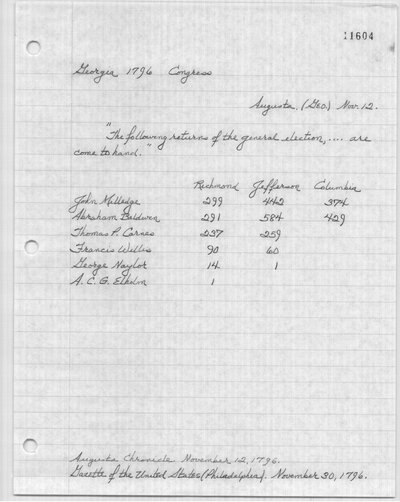 11604
Georgia 1796 Congress
Augusta, (Geo.) Nov. 12.
"The following returns of the general election, .... are
come to hand."
Richmond Jefferson Columbia
John Milledge 299 442 374
Abraham Baldwin 291 584 429
Thomas P. Carnes 237 259
Francis Willis 90 60
George Naylor 14 1
A. C. G. Elholm 1
Augusta Chronicle. November 12, 1796.
Gazette of the United States (Philadelphia). November 30, 1796.